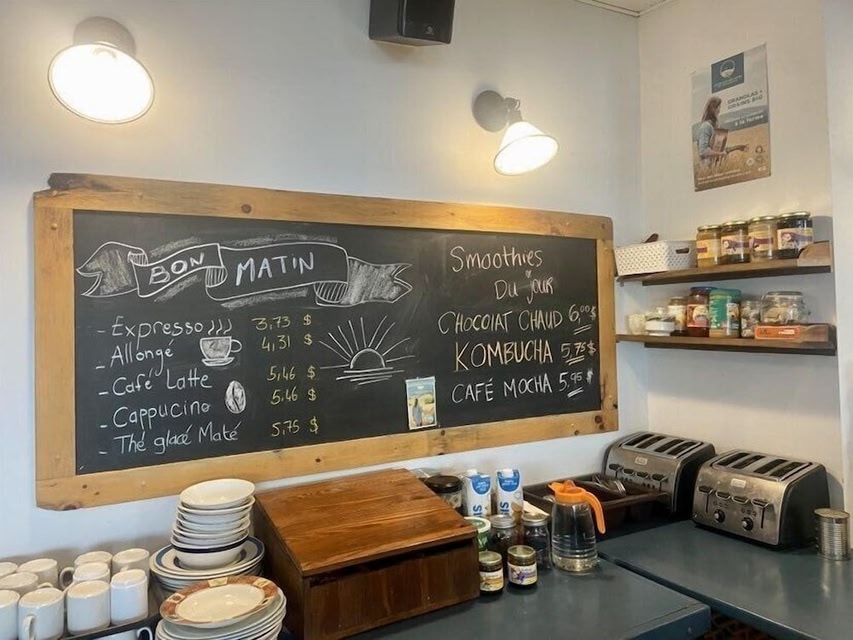 BON MATIN
- Expresso 3,73 $
- Allongé 4,31 $
- Café Latte 5,46 $
- Cappucino 5,46 $
- Thé glacé Maté 5,75 $
Smoothies
Du jour
CHOCOLAT CHAUD 6,00 $
KOMBUCHA 5,75 $
CAFÉ MOCHA 5,95 $
GRANOLAS +
GRAINS BIO
à la ferme